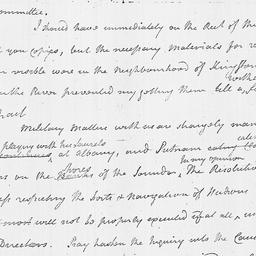 ommittee.
I should have immediately on the Rect of the
you copies, but the necessary materials for
moveable were in the Neighbourhood of Kingston
the River prevented my getting them till a
Military Matters with us are strangely man
playing with his laurels
at albany, and Putnam eating
in my opinion
shores
on the of the Sound. The Resolution
respecting the Forts & Navigation of Hudsons
most will not be properly executed if at all, un
Directors. Pray hasten the Inquiry into the Cause